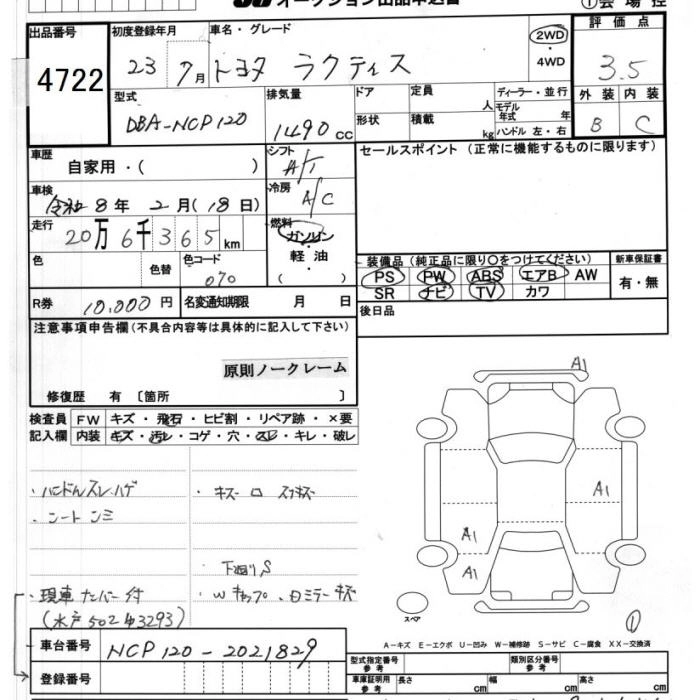 オークション出品申込書
①会場控
出品番号
4722
初度登録年月
23 7月
車名・グレード
トヨタ ラクティス
2WD
・
4WD
評価点
3.5
型式
DBA-NCP120
排気量
1490 cc
ドア
形状
定員 人
積載 kg
ディーラー・並行
モデル年式 年
ハンドル 左・右
外装 内装
B C
車歴
自家用・( )
シフト
A/T
セールスポイント (正常に機能するものに限ります)
車検
令和8年 2月(18日)
冷房
A/C
走行
20万6千365km
燃料
ガソリン
・
軽油
・
( )
色
色替
色コード
070
装備品 (純正品に限り○をつけてください)
PS PW ABS エアB AW
SR ナビ TV カワ
新車保証書
有・無
R券 10,000円
名変通知期限 月 日
後日品
注意事項申告欄(不具合内容等は具体的に記入して下さい)
原則ノークレーム
修復歴 有 〔箇所 〕
検査員
記入欄
FW キズ・飛石・ヒビ割・リペア跡・×要
内装 キズ・汚レ・コゲ・穴・スレ・キレ・破レ
・ハンドルスレ ハゲ
・シートシミ
・キズ
下廻りS
・現車ナンバー付
(水戸502
・Wキャップ ・Dミラーキズ
A1
A1
A1
A1
スペア
①
A-キズ E-エクボ U-凹み W-補修跡 S-サビ C-腐食 XX-交換済
車台番号 NCP120-2021829
登録番号
型式指定番号
参考
類別区分番号
参考
車庫証明用
参考
長さ cm 幅 cm 高さ cm